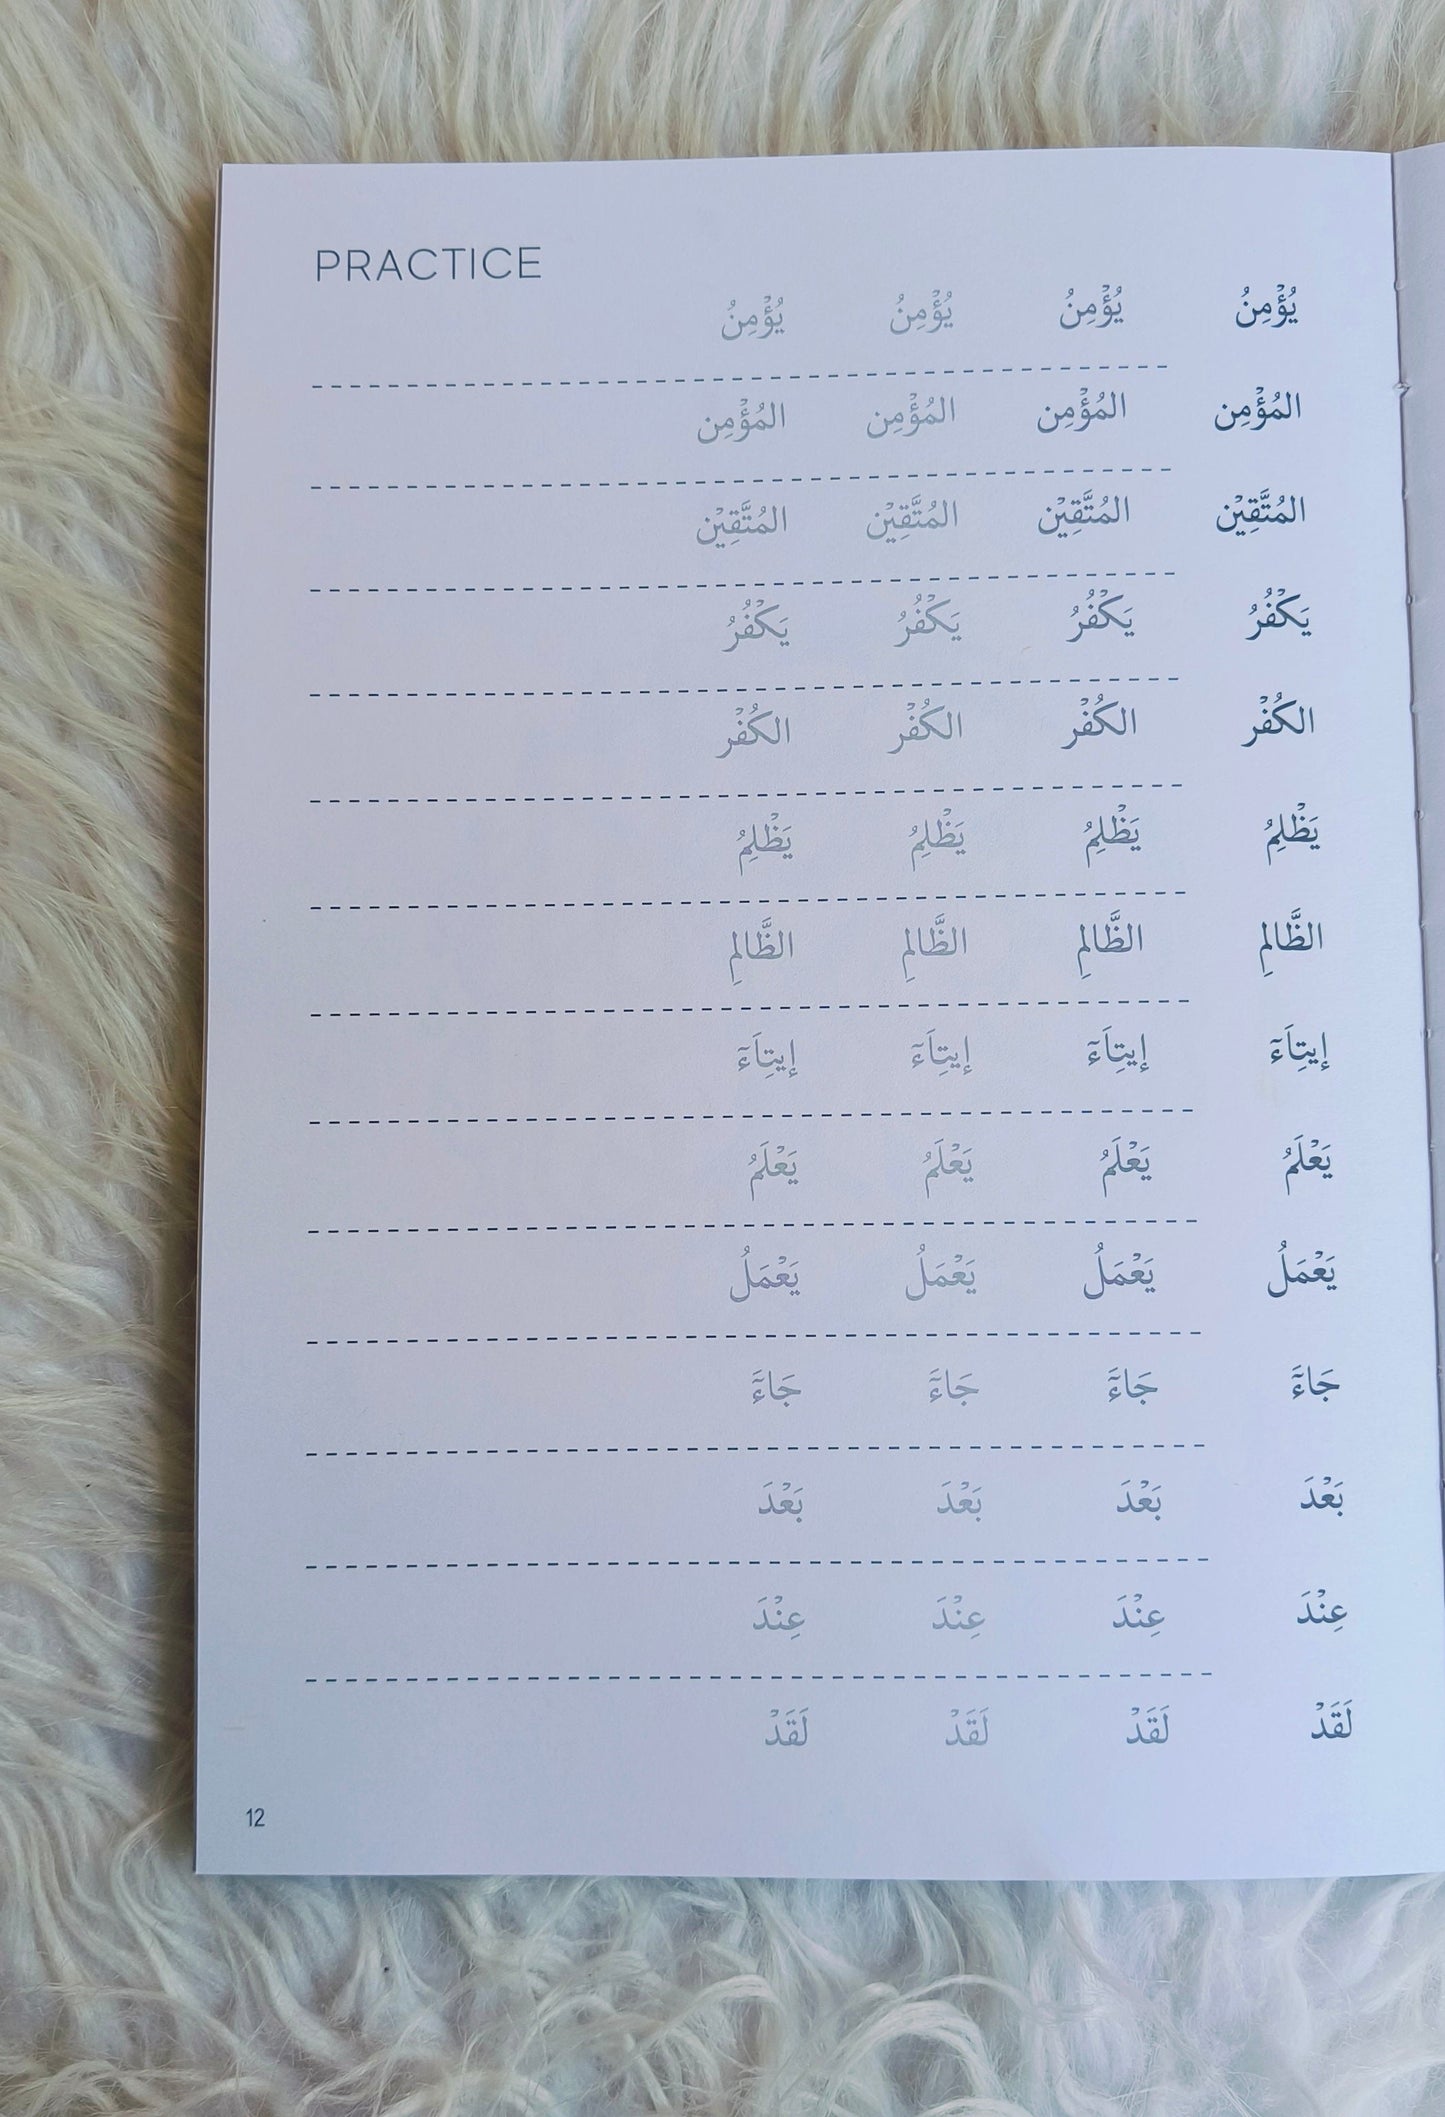 PRACTICE
يُؤْمِنُ يُؤْمِنُ يُؤْمِنُ يُؤْمِنُ
المُؤْمِن المُؤْمِن المُؤْمِن المُؤْمِن
المُتَّقِيْن المُتَّقِيْن المُتَّقِيْن المُتَّقِيْن
يَكْفُرُ يَكْفُرُ يَكْفُرُ يَكْفُرُ
الكُفْر الكُفْر الكُفْر الكُفْر
يَظْلِمُ يَظْلِمُ يَظْلِمُ يَظْلِمُ
الظَّالِمِ الظَّالِمِ الظَّالِمِ الظَّالِمِ
إيتِاَءَٓ إيتِاَءَٓ إيتِاَءَٓ إيتِاَءَٓ
يَعْلَمُ يَعْلَمُ يَعْلَمُ يَعْلَمُ
يَعْمَلُ يَعْمَلُ يَعْمَلُ يَعْمَلُ
جَاءَٓ جَاءَٓ جَاءَٓ جَاءَٓ
بَعْدَ بَعْدَ بَعْدَ بَعْدَ
عِنْدَ عِنْدَ عِنْدَ عِنْدَ
لَقَدْ لَقَدْ لَقَدْ لَقَدْ
12